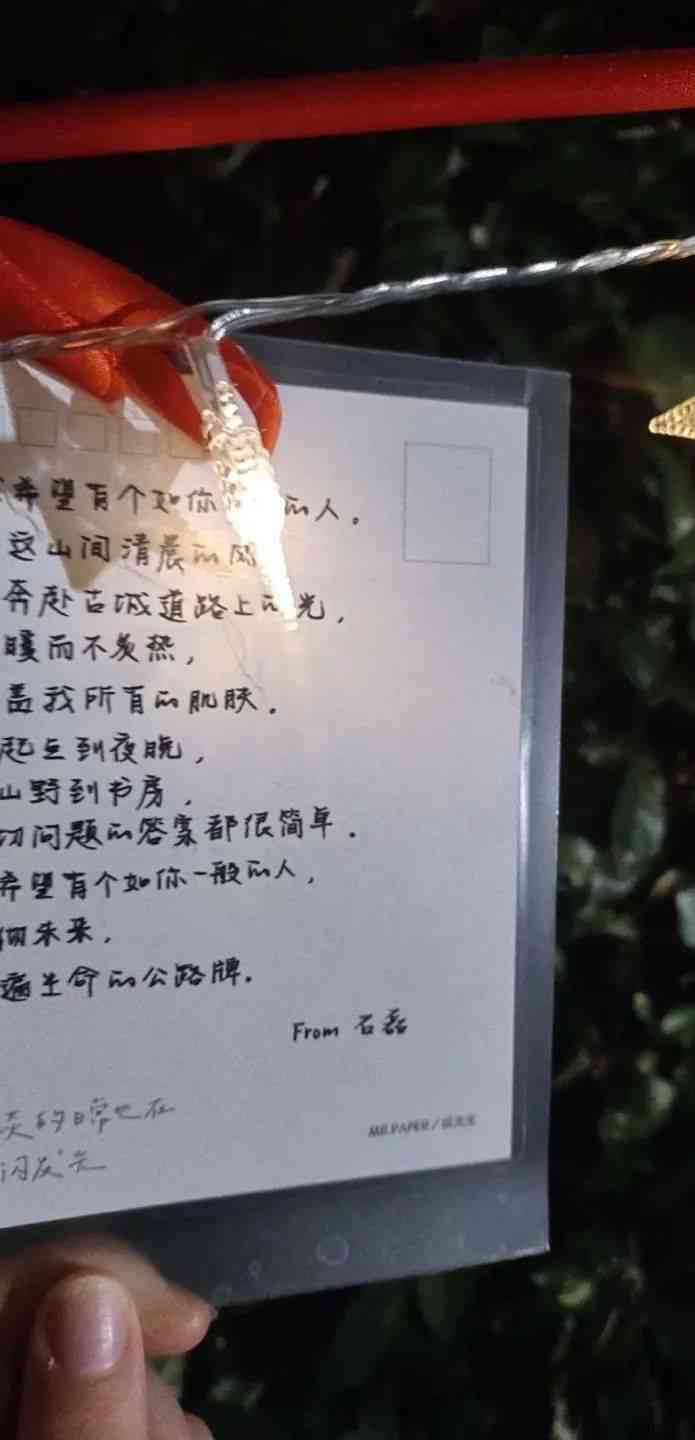 希望有个如你的人。
这山间清晨的风
奔赴古城道路上的光，
暖而不炙热，
盖我所有的肌肤。
起点到夜晚，
山野到书房，
切问题的答案都很简单。
希望有个如你一般的人，
未来，
遍生命的公路牌。
From 石磊
的日常也在
闪发光
MR.PAPER/